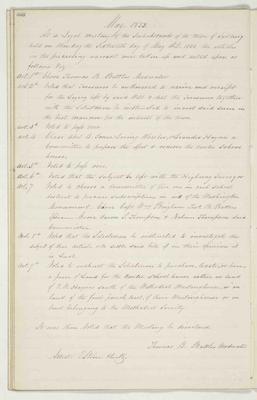 May 1853.
At a legal meeting of the Inhabitants of the Town of Sudbury
held on Monday the Sixteenth day of May A.D. 1853. the articles
in the preceding warrant were taken up and acted upon as
follows Viz.
Art. 1st Chose Thomas B. Battles Moderator
Art. 2d Voted that Treasurer be authorized to receive and receipt
for the Legacy left by and that the Treasurer together
with the Selectmen be instructed to invest said sum in
the best manner for the interest of the town.
Art. 3d Voted to pass over
Art. 4 Chose Abel B. Jones Loring Wheeler & Leander Haynes a
Committee to prepare the plot & remove the center School
house.
Art. 5th Voted to pass over
Art. 6th Voted that the Subject be left with the Highway Surveyors
Art. 7 Voted to choose a Committee of five one in each School
district to procure subscriptions in aid of the Washington
Monument. Chose Capt Wm
Moore Aaron S. Thompson & Nahum Thompson said
Committee
Art. 8th Voted that the Selectmen be instructed to investigate the
subject of this article & to settle said note if in their opinion it
is Just.
Art. 9th Voted to instruct the Selectmen to purchase, locate, or hire
a piece of Land for the Center School house either on land
of south of the Methodist Meetinghouse, or on
land of the first parish east of their Meetinghouse or on
land belonging to the Methodist Society
It was then Voted that the Meeting be dissolved
Thomas B. Battles Moderator
Attest Clerk